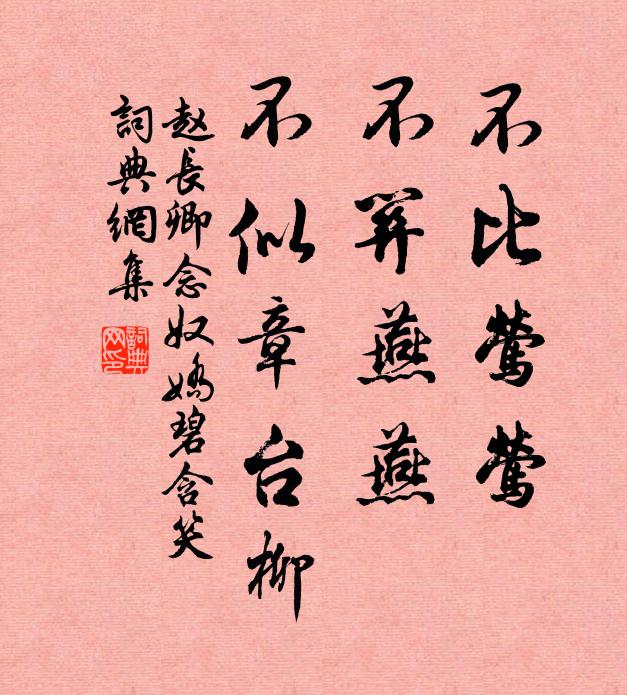 不比鶯鶯
不燕燕
不似章台柳
赵長卿念奴嬌碧含笑
詞典網集
詞典
网印